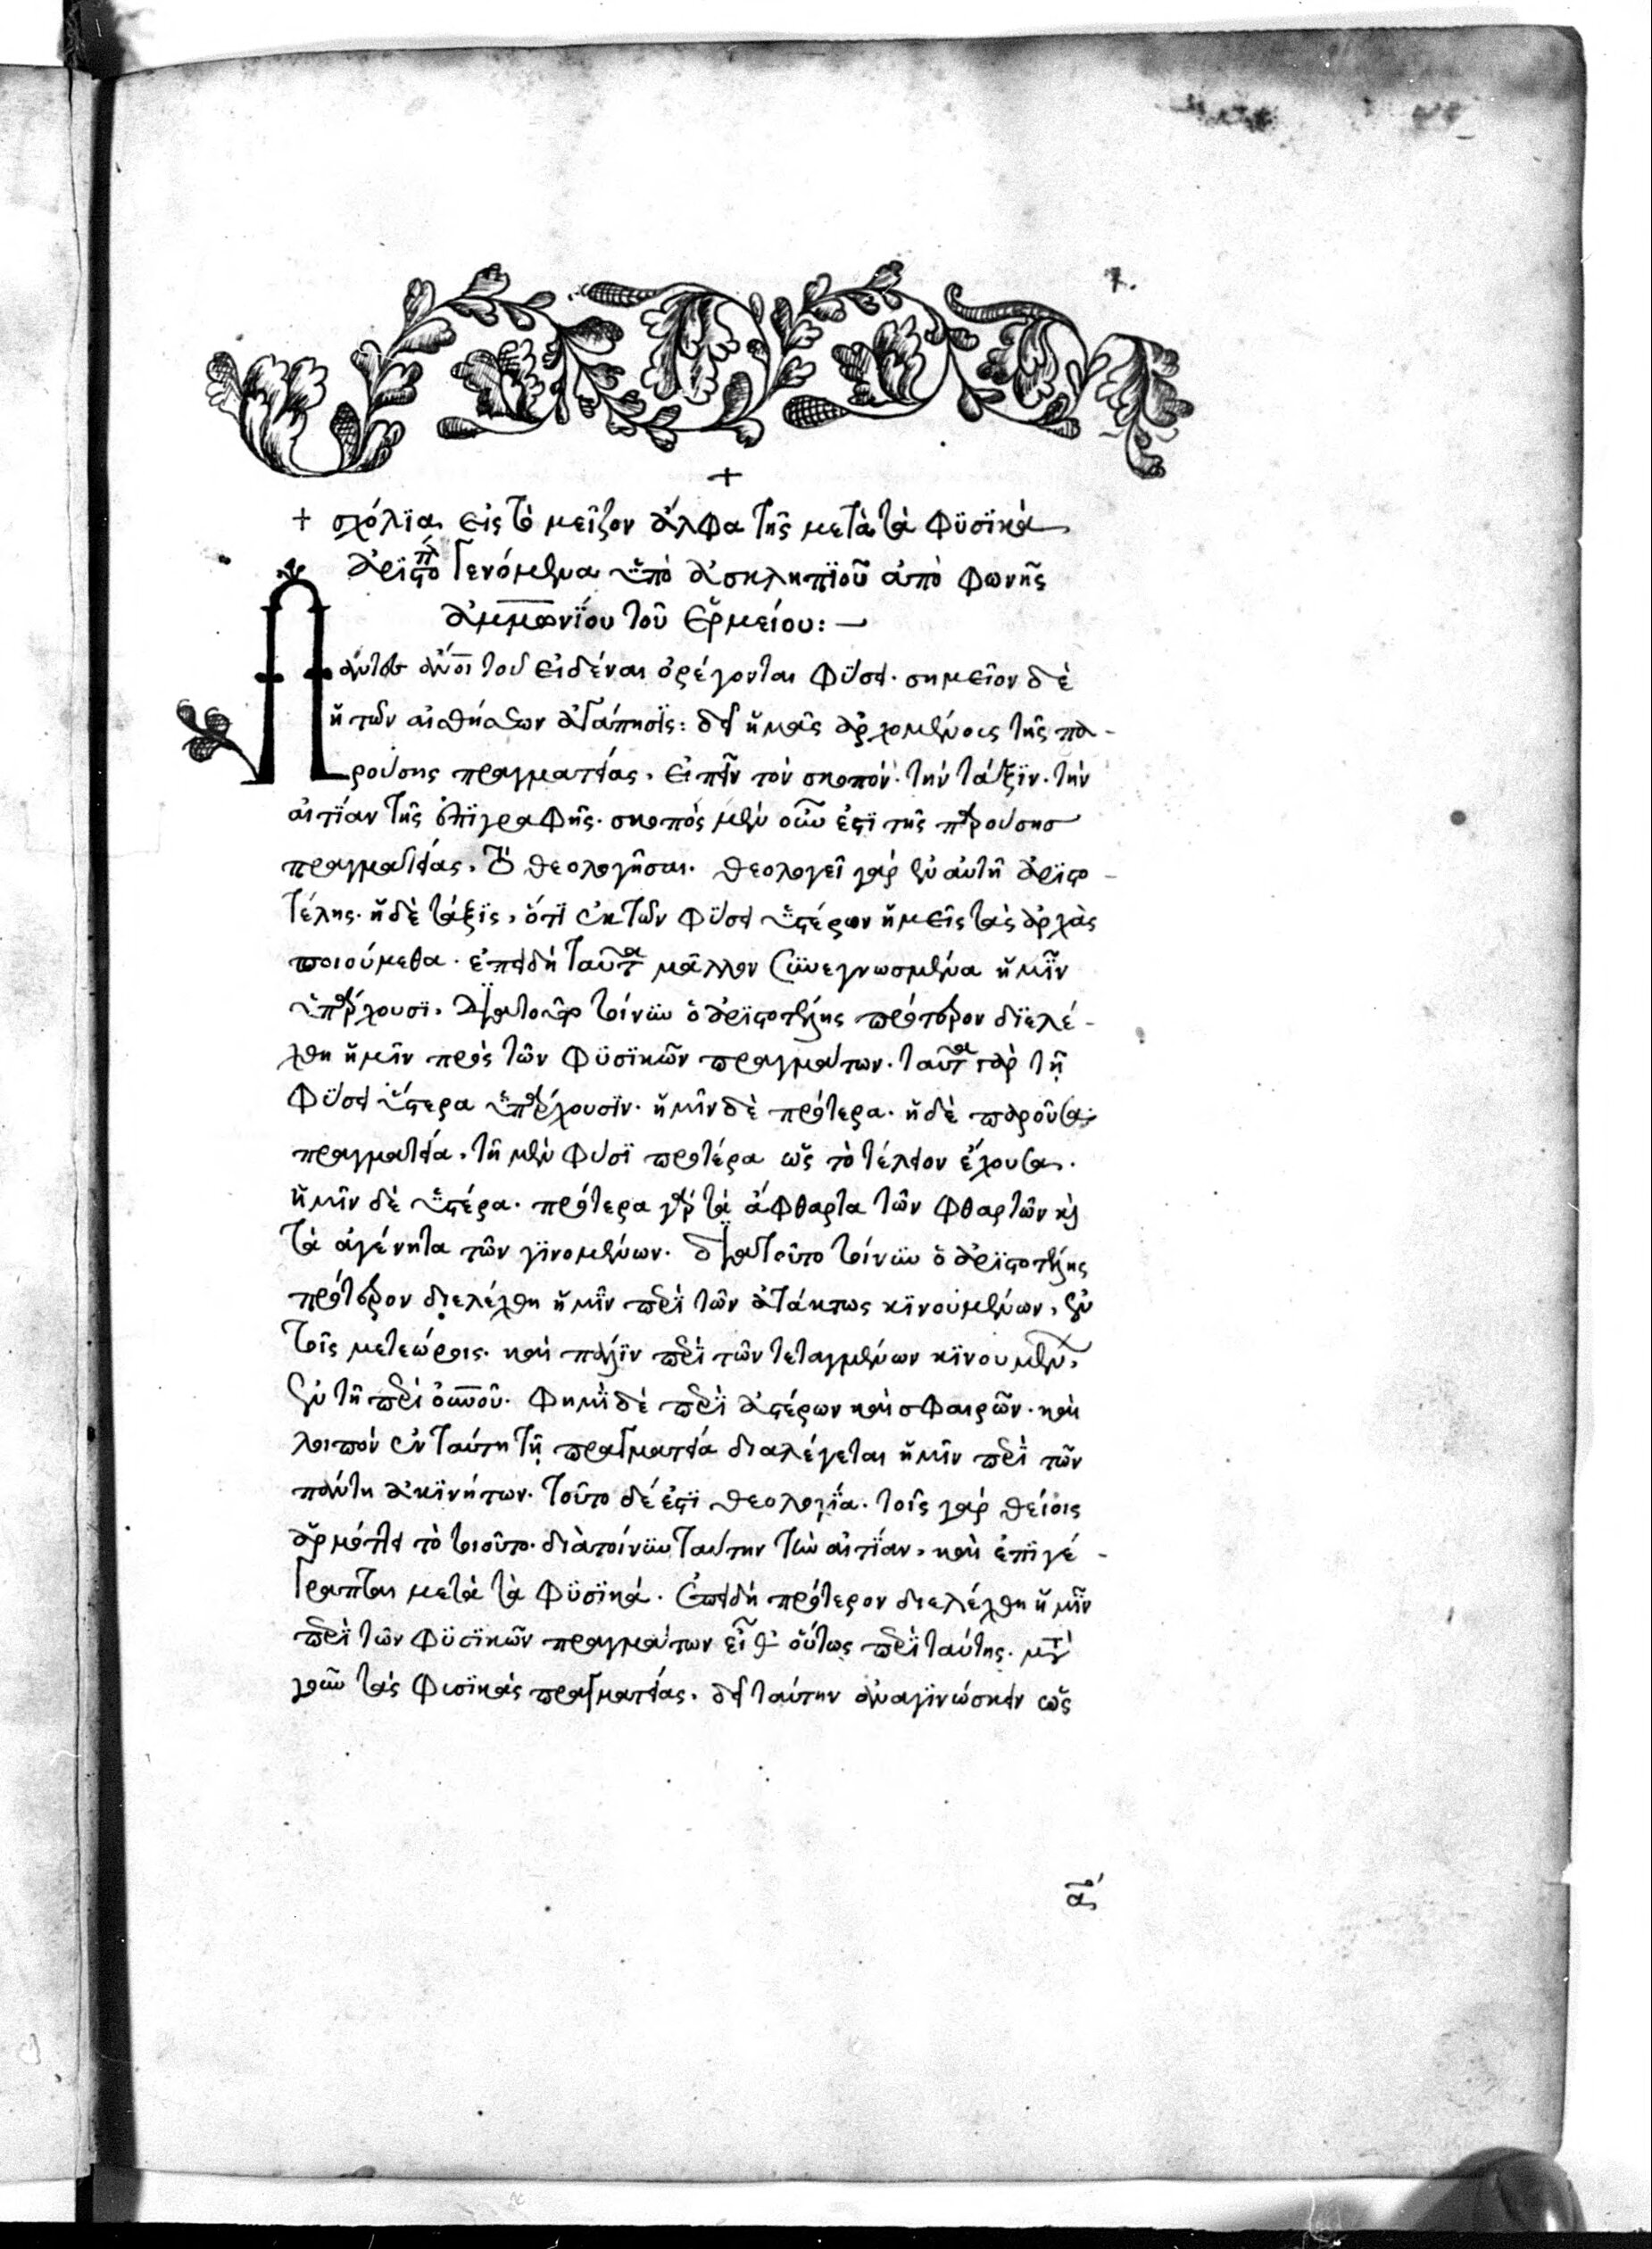 7.
+
+ σχόλϊα εἰς τὸ μεῖζον ἄλφα τῆς μετὰ τὰ φϋσϊκὰ
ἀρϊστο γενόμενα ὑπὸ ἀσκληπϊοῦ ἀπὸ φωνῆς
ἀμμωνΐου τοῦ ἑρμείου: —
Πάντες ἄνοι τοῦ εἰδέναι ὀρέγονται φΰσει. σημεῖον δὲ
ἡ τῶν αἰσθήσεων ἀγάπησϊς: δεῖ ἡμᾶς ἀρχομένοις τῆς πα-
ρούσης πραγματείας, εἰπεῖν τὸν σκοπόν. τὴν τάξϊν. τὴν
αἰτΐαν τῆς ἐπϊγραφῆς. σκοπὸς μὲν οὖν ἐστϊ τῆς παρούσης
πραγματείας, τὸ θεολογῆσαι. θεολογεῖ γὰρ ἐν αὐτῆ ἀρϊστο-
τέλης. ἡ δὲ τάξϊς, ὅτϊ ἐκ τῶν φΰσει ὑστέρων ἡμεῖς τὰς ἀρχὰς
ποιούμεθα. ἐπειδὴ ταῦτα μᾶλλον συνεγνωσμένα ἡμῖν
ὑπάρχουσϊ. διατοῦτο τοίνυν ὁ ἀρϊστοτέλης πρότερον διελέ-
χθη ἡμῖν πρὸς τῶν φϋσϊκῶν πραγμάτων. ταῦτα γὰρ τῆ
φΰσει ὕστερα ὑπάρχουσϊν. ἡμῖν δὲ πρότερα. ἡ δὲ παροῦσα
πραγματεία, τῆ μὲν φύσϊ προτέρα ὡς τὸ τέλειον ἔχουσα.
ἡμῖν δὲ ὑστέρα. πρότερα γὰρ τὰ ἄφθαρτα τῶν φθαρτῶν καὶ
τὰ ἀγένητα τῶν γϊνομένων. διατοῦτο τοίνυν ὁ ἀρϊστοτέλης
πρότερον διελέχθη ἡμῖν περὶ τῶν ἀτάκτως κϊνουμένων, ἐν
τοῖς μετεώροις. καὶ πάλϊν περὶ τῶν τεταγμένων κϊνουμένων,
ἐν τῆ περὶ οὐνοῦ. φημῒ δὲ περὶ ἀστέρων καὶ σφαιρῶν. καὶ
λοιπὸν ἐν ταύτη τῆ πραγματεία διαλέγεται ἡμῖν περὶ τῶν
πάντη ἀκϊνήτων. τοῦτο δέ ἐστϊ θεολογΐα. τοῖς γὰρ θείοις
ἁρμόττει τὸ τοιοῦτο. διὰ τοίνυν ταύτην τὴν αἰτΐαν, καὶ ἐπϊγέ-
γραπται μετὰ τὰ φϋσϊκά. ἐπειδὴ πρότερον διελέχθη ἡμῖν
περὶ τῶν φϋσϊκῶν πραγμάτων εἶθ' οὕτως περὶ ταύτης. μετὰ
γοῦν τὰς φυσϊκὰς πραγματείας. δεῖ ταύτην ἀναγϊνώσκειν ὡς
α